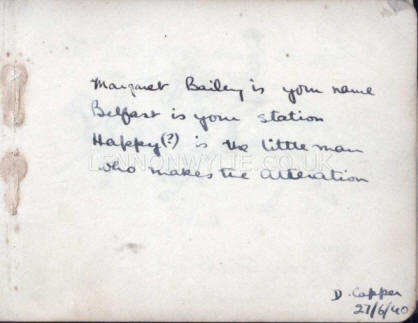 Margaret Bailey is your name
Belfast is your station
Happy(?) is the little man
LENNONWYLIE.CO.UK
who makes the alteration
D. Capper
27/6/40